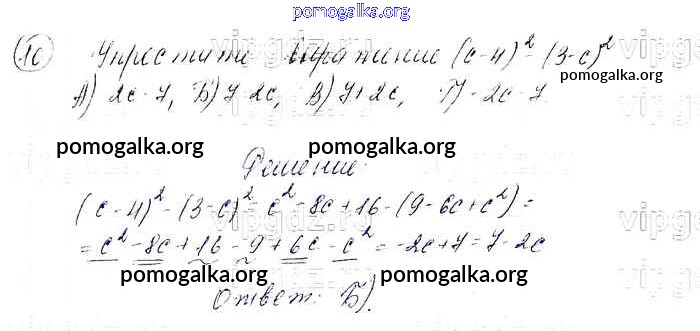 pomogalka.org
10 Упростить выражение (с-4)² - (3-с)²
pomogalka.org
А) 2с-7, Б) 7-2с, В) 7+2с, Г) -2с-7
pomogalka.org pomogalka.org
Решение:
(с-4)² - (3-с)² = с² - 8с + 16 - (9 - 6с + с²) =
= с² - 8с + 16 - 9 + 6с - с² = -2с + 7 = 7 - 2с
pomogalka.org pomogalka.org
Ответ: Б).